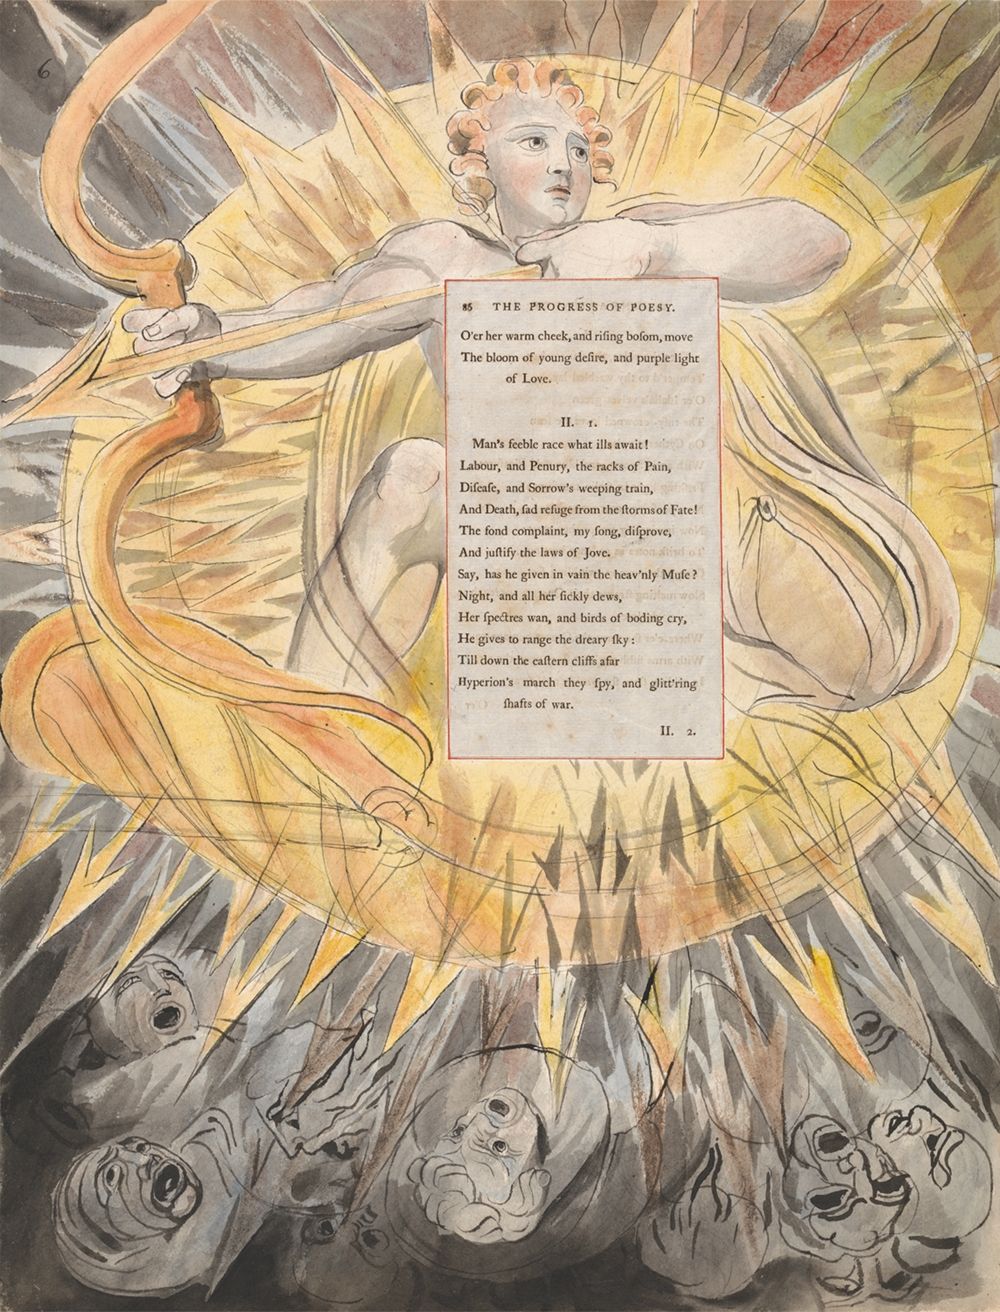 6
86 THE PROGRESS OF POESY.
O'er her warm cheek, and riſing boſom, move
The bloom of young deſire, and purple light
of Love.
II. 1.
Man's feeble race what ills await!
Labour, and Penury, the racks of Pain,
Diſeaſe, and Sorrow's weeping train,
And Death, ſad refuge from the ſtorms of Fate!
The fond complaint, my ſong, diſprove,
And juſtify the laws of Jove.
Say, has he given in vain the heav'nly Muſe?
Night, and all her ſickly dews,
Her ſpectres wan, and birds of boding cry,
He gives to range the dreary ſky:
Till down the eaſtern cliffs afar
Hyperion's march they ſpy, and glitt'ring
ſhafts of war.
II. 2.